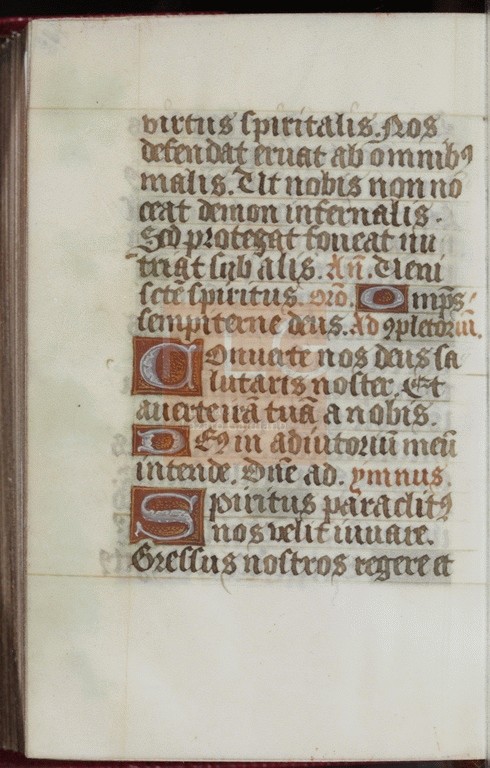 virtus spiritalis. Nos
defendat eruat ab omnibꝰ
malis. Ut nobis non no
ceat demon infernalis.
Sed protegat foueat nu
triat sub alis. Añ. Ueni
sct̄e spiritus. oro᷉. Omp̄s
sempiterne deus. Ad ꝯpletoriū.
Conuerte nos deus sa
lutaris noster. Et
auerte irā tuā a nobis.
Deꝰ in adiutoriū meū
intende. Dn̄e ad. ymnus.
Spiritus paraclitꝰ
nos velit iuuare.
Gressus nostros regere et